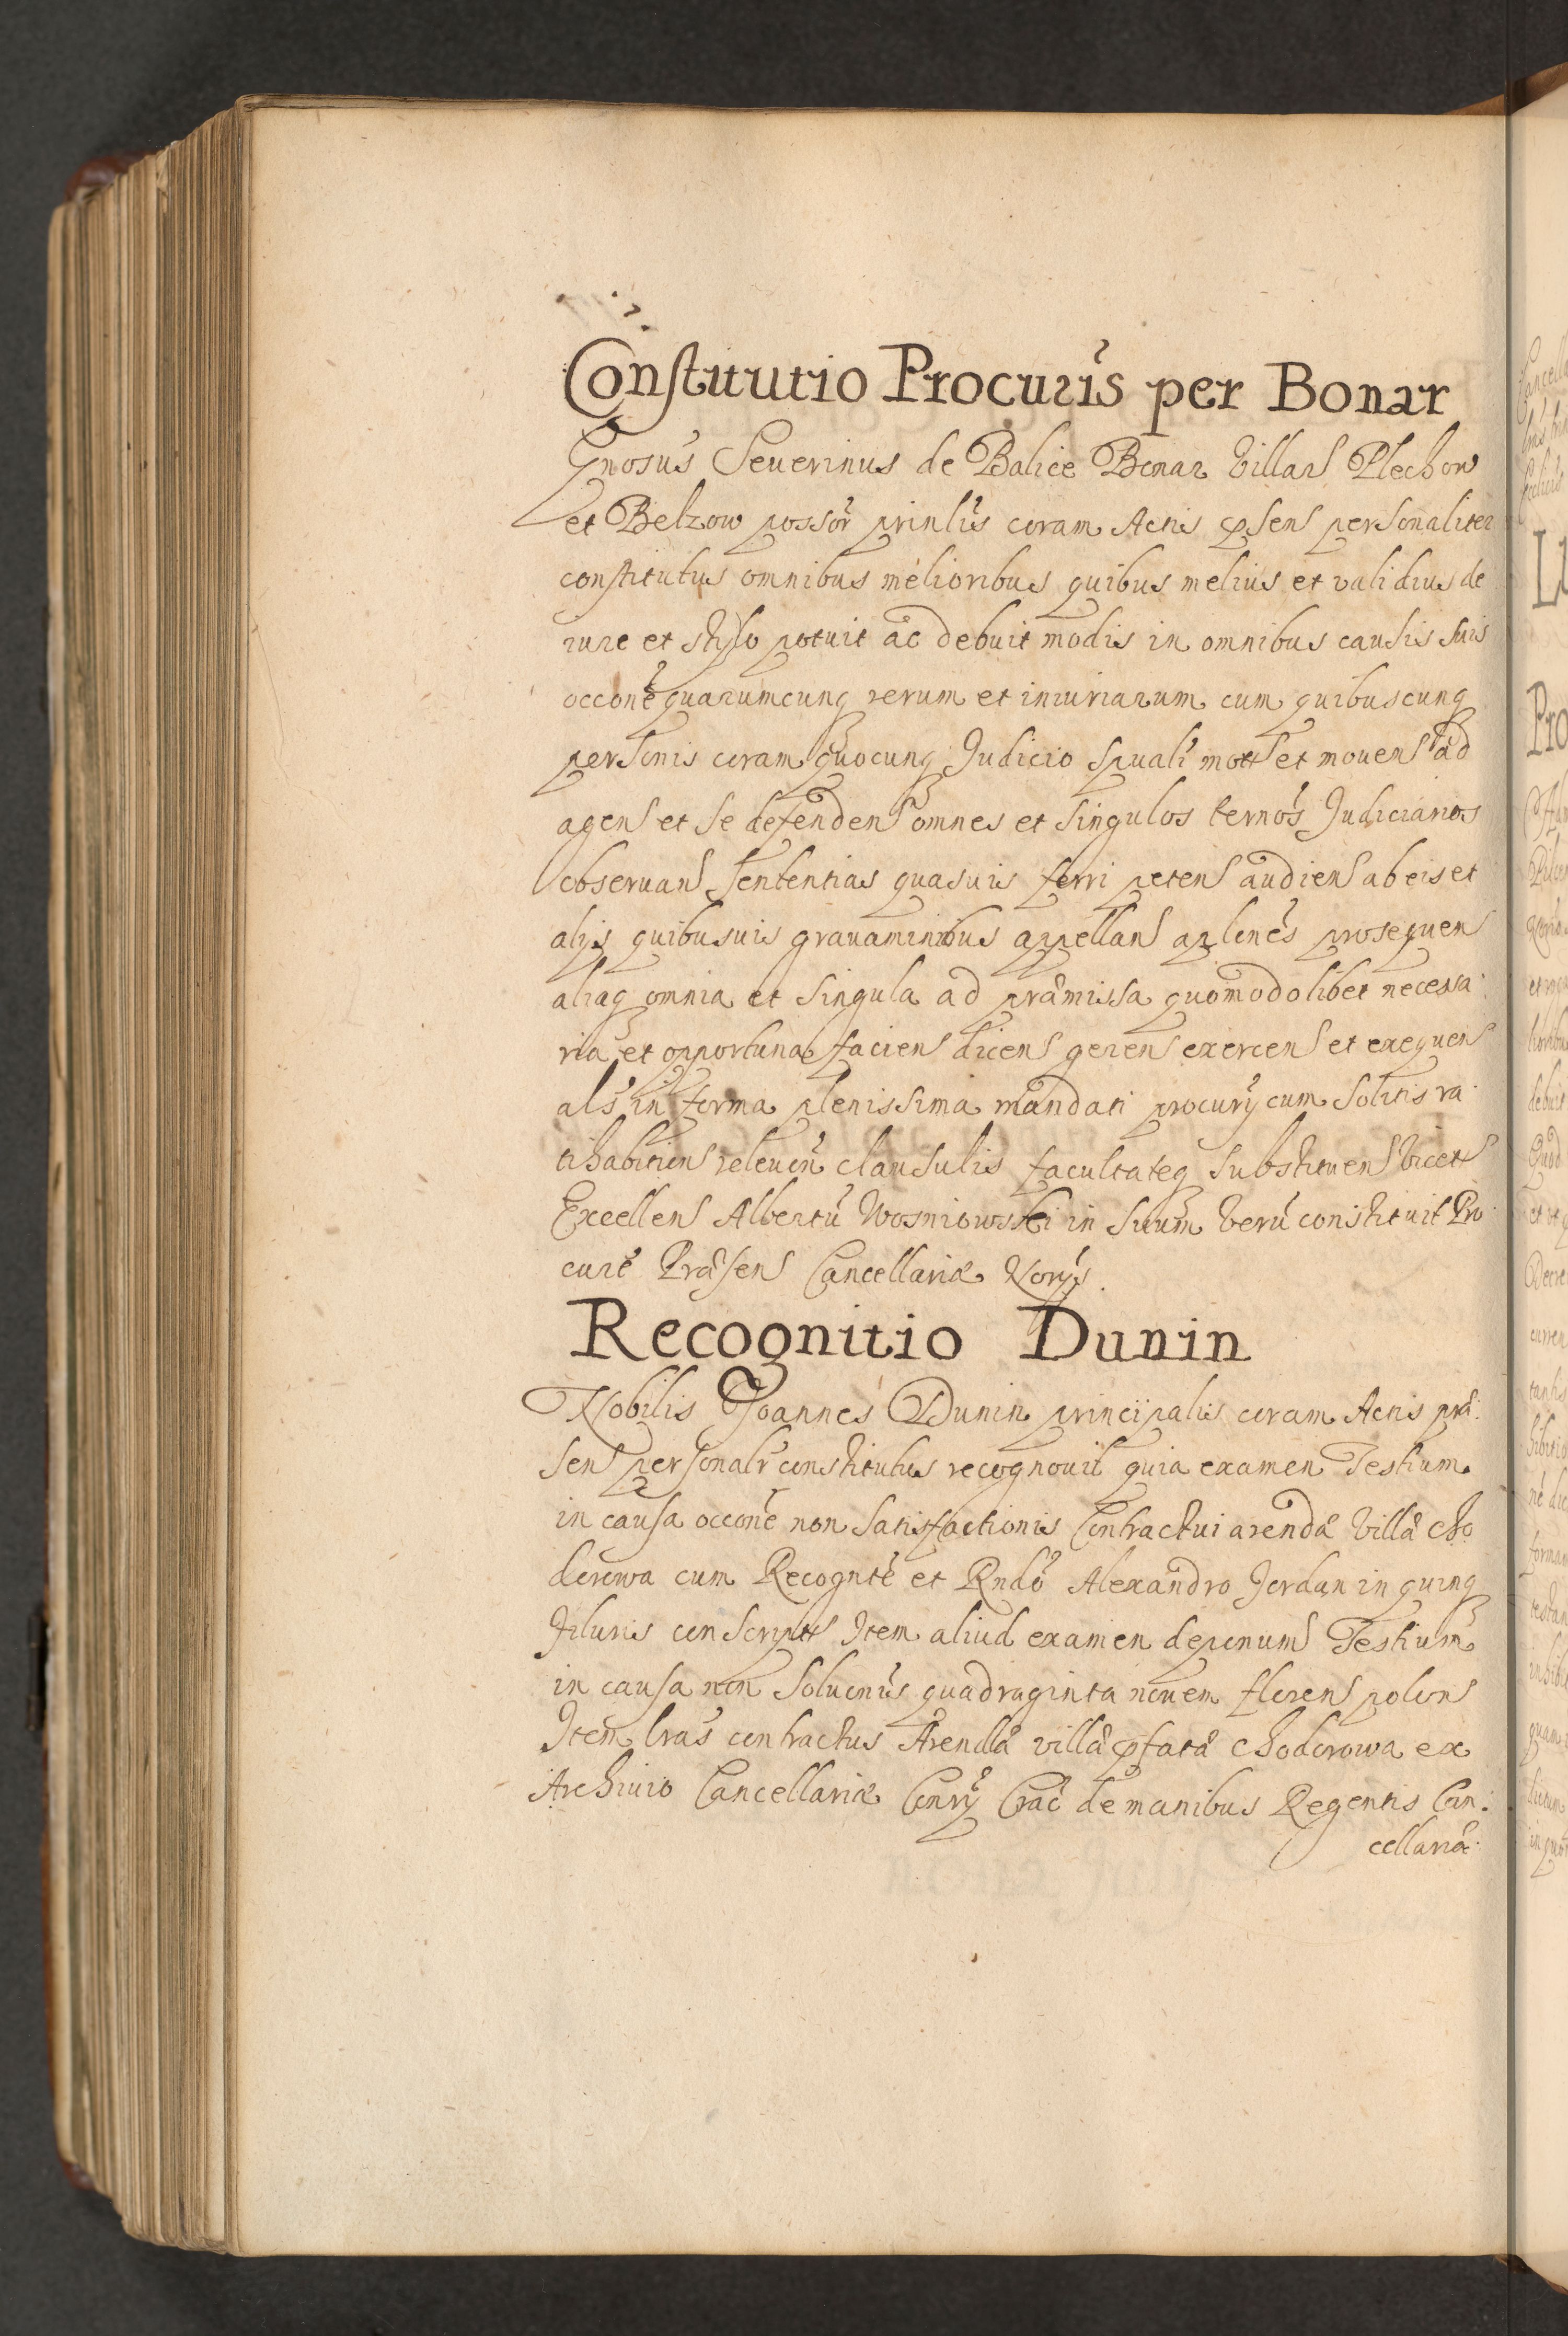 Constitutio Procuris per Bonar
Gnosus Severinus de Balice Bonar Villar Plechow
et Belzow possor prinlis coram Actis psens personaliter
constitutus omnibus melioribus quibus melius et validius de
iure et stylo potuit ac debuit modis in omnibus causis suis
occone quarumcunq rerum et iniuriarum cum quibuscunq
personis coram quocunq Judicio spuali mott et movens ad
agens et se defendens omnes et singulos ternos Judiciarios
observans Sententias quasuis ferri petens audiens ab eis et
alijs quibusuis gravaminibus appellans aplenes prosequens
aliaq omnia et singula ad præmissa quomodolibet necessa
ria et opportuna faciens dicens gerens exercens et exequens
als in forma plenissima mandati procurij cum solitis ra
tihabitiens releven clausulis facultateq substituens vices
Excellens Albertu Wosniowski in suum veru constituit Pro
cure Præsens Cancellariæ Norys.
Recognitio Dunin
Nobilis Joannes Dunin principalis coram Actis præ
sens personalr constitutus recognovit quia examen Testium
in causa occone non satisfactionis Contractui arendæ Villæ Cho
dorowa cum Recognte et Rndo Alexandro Jordan in quinq
filuris conscriptt Item aliud examen deponums Testium
in causa non solucnis quadraginta novem florens polons
Item lras contractus Arendæ villæ pfatæ Chodorowa ex
Archivio Cancellariæ Conrij Crac de manibus Regentis Can:
cellariæ